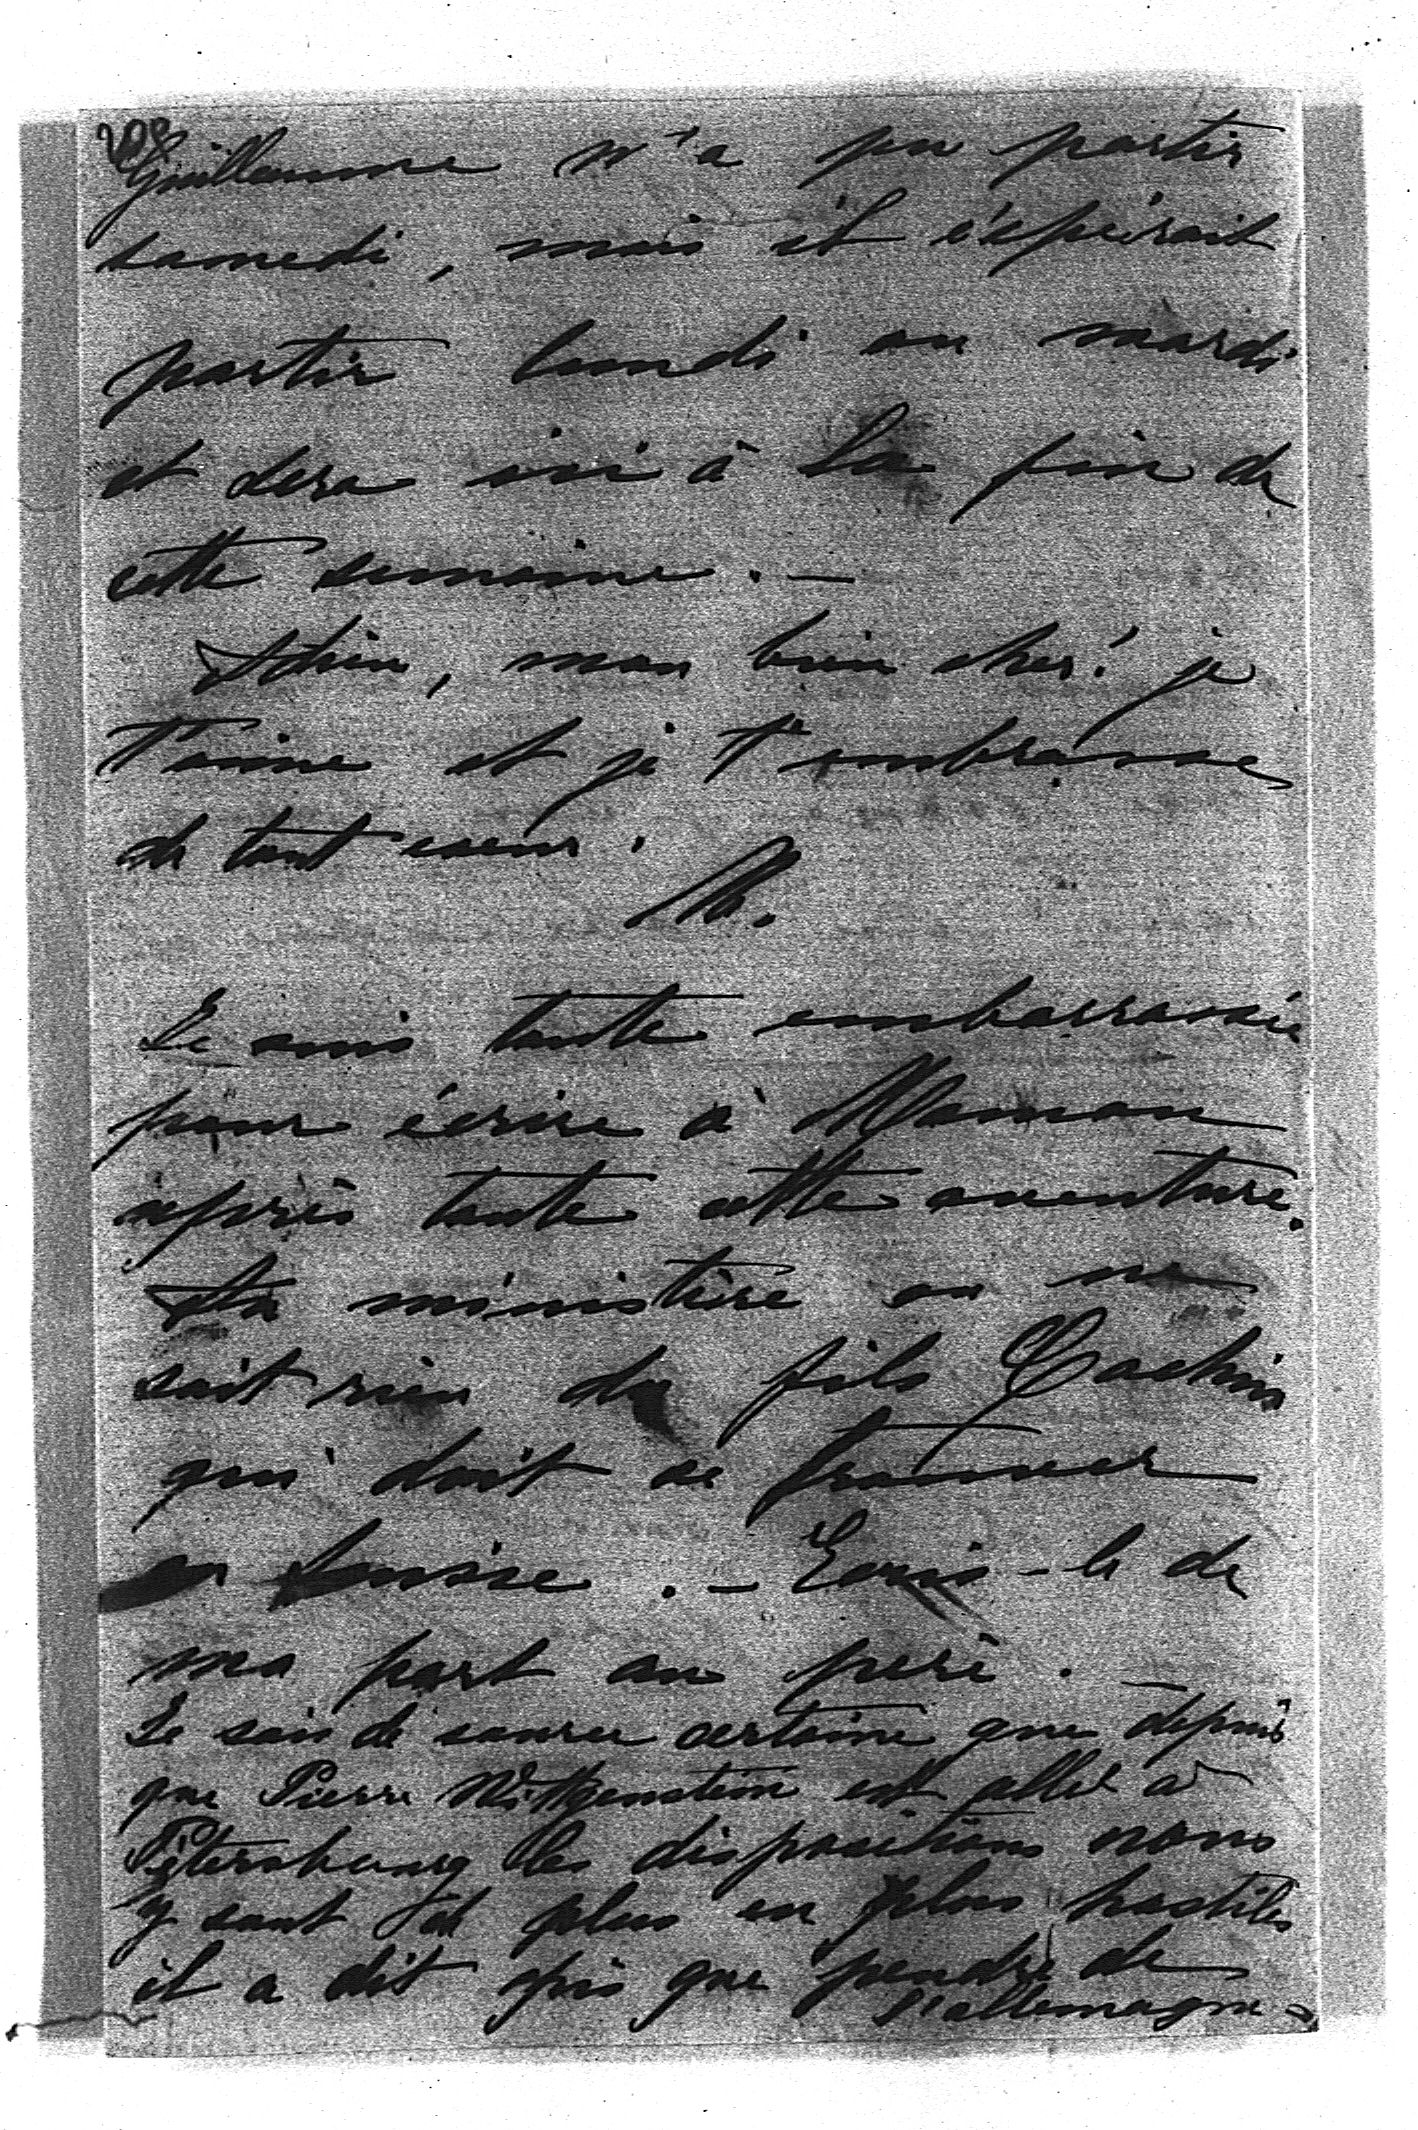 208
Guillaume n'a pu partir
samedi, mais il espérait
partir lundi ou mardi
et sera ici à la fin de
cette semaine. –
Adieu, mon bien cher! je
t'aime et je t'embrasse
de tout coeur.
M.
Je suis toute embarrassée
pour écrire à Maman
après toute cette aventure.
Au ministère on ne
sait rien du fils Cachin
qui doit se trouver
en Suisse. – Ecris-le de
ma part au père.
Je sais de source certaine que depuis
que Pierre Wittgenstein est allé à
Pétersbourg les dispositions nous
y sont de plus en plus hostiles
il a dit pis que pendre de
l'allemagne